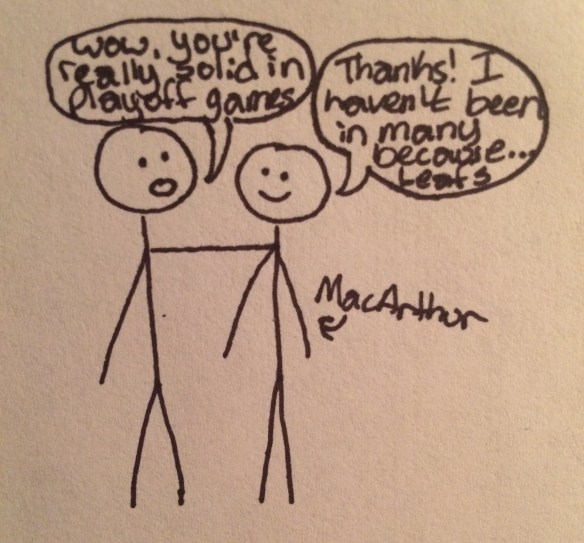 Wow, you're
really solid in
playoff games
Thanks! I
haven't been
in many
because...
Leafs
MacArthur